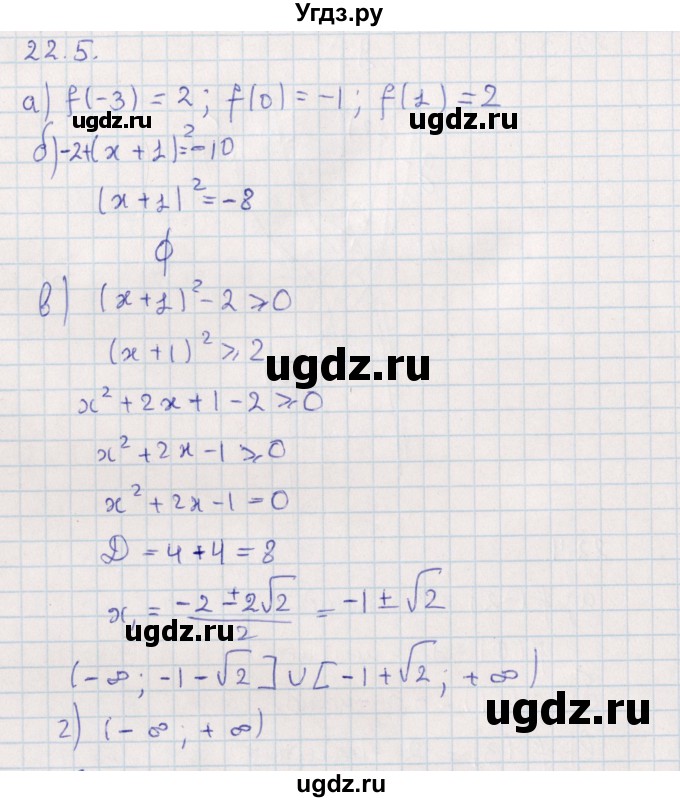 Угдз.ру
22.5.
а) f(-3) = 2; f(0) = -1; f(1) = 2
ugdz.ru ugdz.ru
б) -2+(x+1)²=-10
(x+1)²=-8
ϕ
в) (x+1)²-2⩾0
(x+1)²⩾2
ugdz.ru
x²+2x+1-2⩾0
x²+2x-1⩾0
x²+2x-1=0
D=4+4=8
x₁ = (-2±2√2)/2 = -1±√2
ugdz.ru
(-∞; -1-√2] ∪ [-1+√2; +∞)
ugdz.ru
г) (-∞; +∞)
ugdz.ru